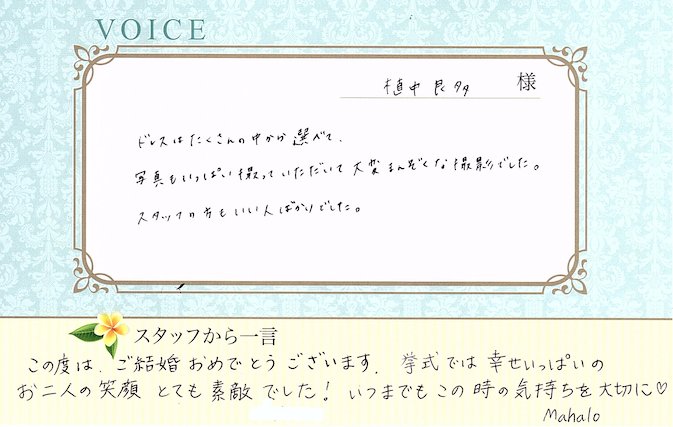 VOICE
植中 良多 様
ドレスはたくさんの中から選べて、
写真もいっぱい撮っていただいて大変まんぞくな撮影でした。
スタッフの方もいい人ばかりでした。
スタッフから一言
この度は、ご結婚おめでとうございます。挙式では幸せいっぱいの
お二人の笑顔とても素敵でした！いつまでもこの時の気持ちを大切に♡
Mahalo